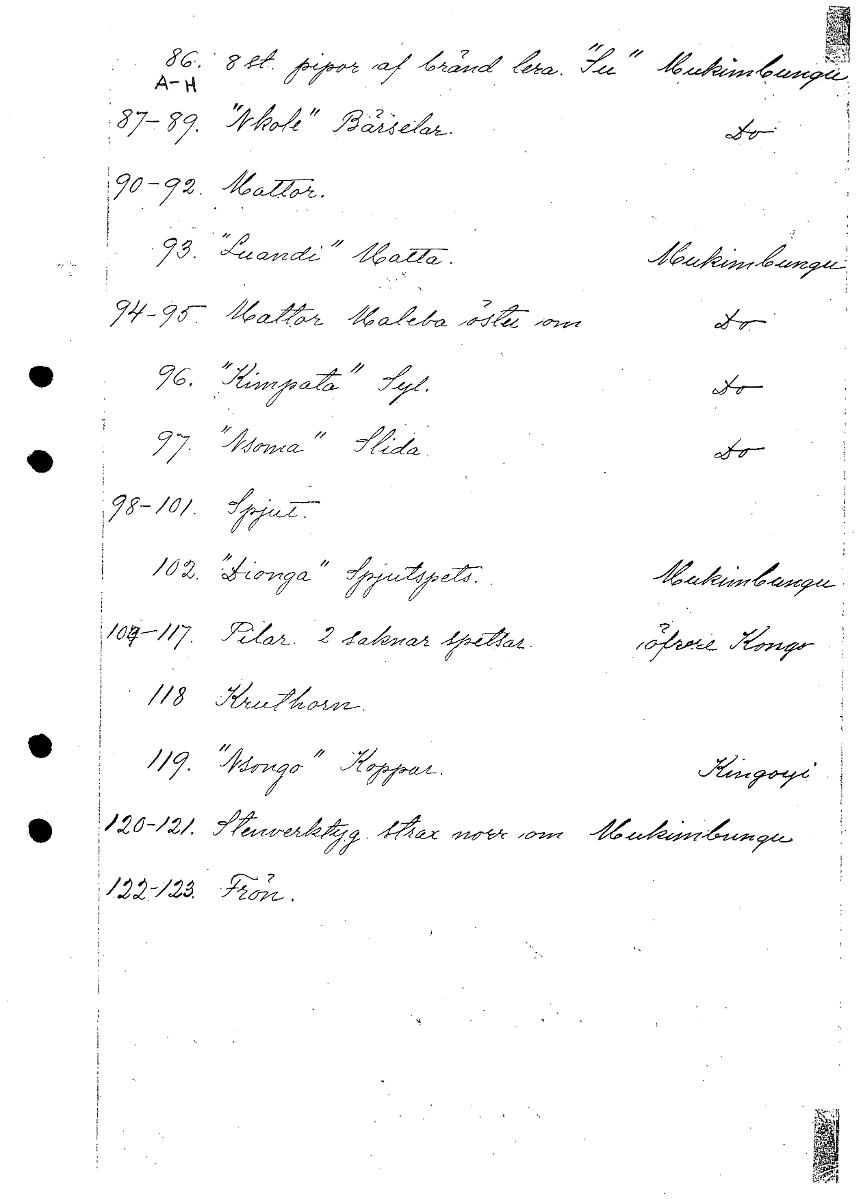 86. 8 st. pipor af bränd lera. "Su" Mukimbungu
A-H
87-89. "Nkole" Bärselar. Do
90-92. Mattor.
93. "Luandi" Matta. Mukimbungu
94-95. Mattor Maleba öster om Do
96. "Kimpata" Syl. Do
97. "Nsoma" Slida Do
98-101. Spjut.
102. "Dionga" Spjutspets. Mukimbungu
104-117. Pilar. 2 saknar spetsar. öfvre Kongo
118 Kruthorn.
119. "Nsongo" Koppar. Kingoyi
120-121. Stenverktyg strax norr om Mukimbungu
122-123. Frön.